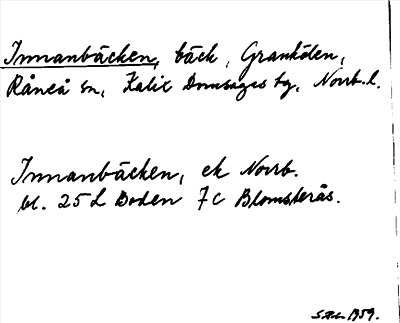 Innanbäcken, bäck, Granhöten,
Råneå sn, Kalix Domsagas tg, Norrb. l.
Innanbäcken, ek Norrb.
bl. 25 L Boden 7c Blomsterås.
1959.